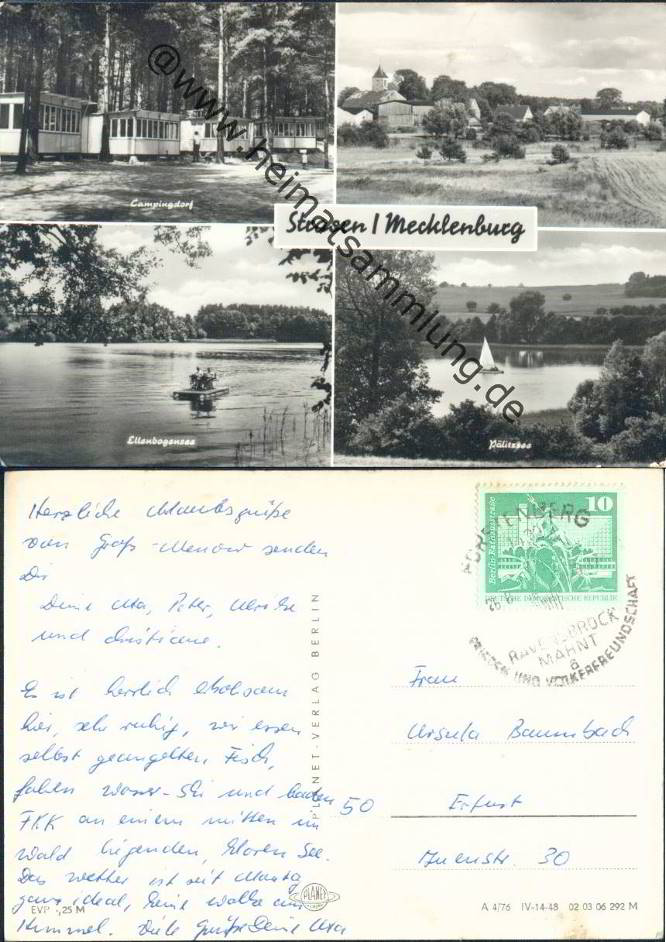 @www.heimatsammlung.de
Campingdorf
Strasen / Mecklenburg
Ellenbogensee
Pälitzsee
Herzliche Urlaubsgrüße
von Groß-Menow senden
Dir
Deine Uta, Peter, Ulrike
und Christiane.
Es ist herrlich erholsam
hier, sehr ruhig, wir essen
selbst geangelten Fisch,
fahren Wasser-Ski und baden
FKK an einem mitten im
Wald liegenden, klaren See.
Das Wetter ist seit Montag
ganz ideal, keine Wolke am
Himmel. Viele Grüße Deine Uta
PLANET-VERLAG BERLIN
10
DEUTSCHE DEMOKRATISCHE REPUBLIK
FÜRSTENBERG
RAVENSBRÜCK
MAHNT
a
FRIEDEN UND VÖLKERFREUNDSCHAFT
Frau
Ursula Baumbach
50 Erfurt
30
PLANET
EVP -,25 M
A 4/76 IV-14-48 02 03 06 292 M